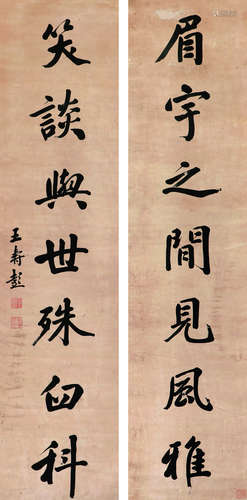 眉宇之間見風雅
笑談與世殊臼科
王壽彭